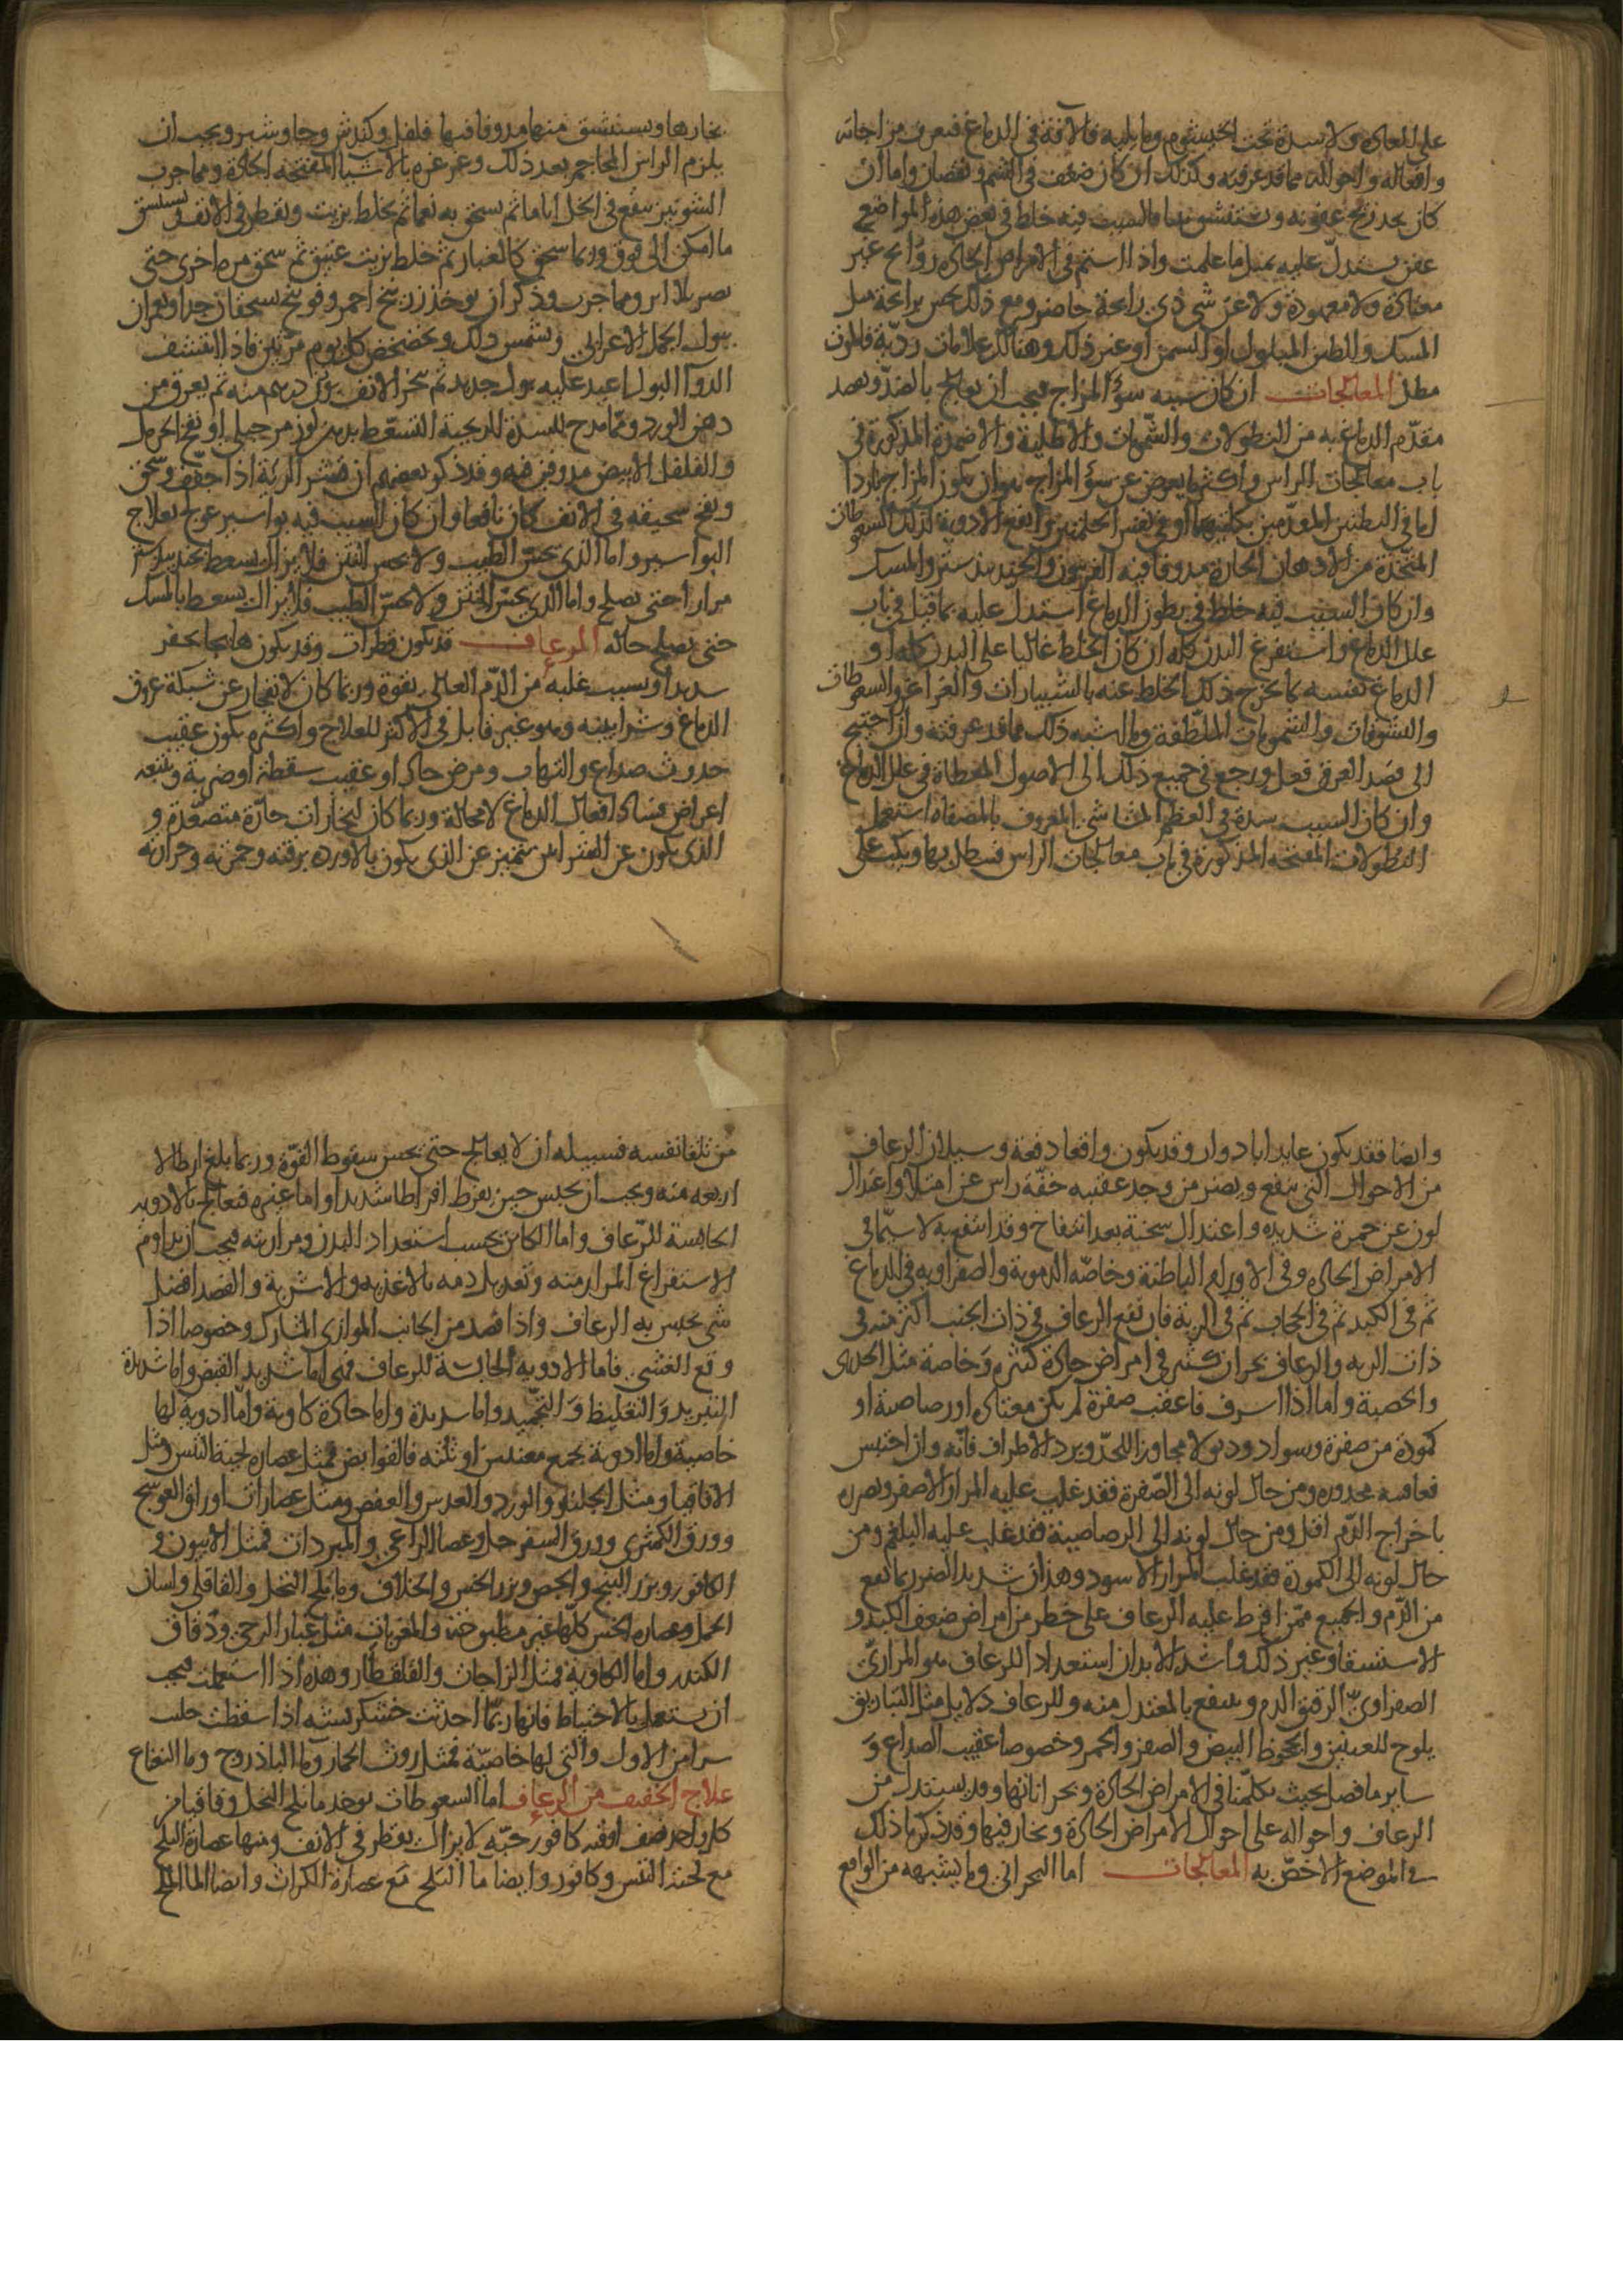 على العادة ولا سدة تحت الخيشوم وما يليه فالآفة في الدماغ فتعرف مزاجاته
وافعاله واحواله مما قد عرفته وكذلك ان كان ضعف في الشم ونقصان واما ان
كان يجد ريح عفونه ويستنشقونها فالسبب فيه خلط في بعض هذه المواضع
عفن يستدل عليه بمثل ما علمت واذا اشتم في الامراض الحادة روايح غير
معتادة ولا معهودة ولا عن شي ذي رايحة حاضر ومع ذلك يحس برايحة مثل
المسك والطين المبلول او السمن او غير ذلك وهناك علامات رديّة فالموت
مطل المعالجات ان كان سببه سؤ المزاج فيجب ان يعالج بالضدّ ويقصد
مقدّم الدماغ به من النطولات والشمومات والاطلية والاضمدة المذكورة في
باب معالجات الراس واكثر ما يعرض عن سؤ المزاج هو ان يكون المزاج باردا
اما في البطنين المقدّمين بكليتهما او في نفس الحلمتين وانفع الادوية لذلك السعوطات
المتخذة من الادهان الحارة مدوفا فيه الفربيون والجندبيدستر والمسك
وان كان السبب فيه خلط في بطون الدماغ استدل عليه بما قيل في باب
علل الدماغ واستفرغ البدن كله ان كان الخلط غالبا على البدن كله او
الدماغ نفسه بما يخرج ذلك الخلط عنه بالشبيارات والغراغر والسعوطات
والنشوقات والشمومات الملطّفة وما اشبه ذلك مما قد عرفته وان احتيج
الى فصد العرق فعل ورجع في جميع ذلك الى الاصول المعطاة في علل الدماغ
وان كان السبب سدة في العظم المشاشي المعروف بالمصفاة استعمل
النطولات المفتحة المذكورة في باب معالجات الراس فينطل بها ويكب على
بخارها ويستنشق منها مدوفا فيها فلفل وكندش وجاوشير ويجب ان
يلزم الراس المحاجم بعد ذلك وغرغره بالاشيا المفتحة الحادة ومما جرب
الشونيز ينقع في الخل اياما ثم يسحق به نعما ثم يخلط بزيت ويقطر في الانف ويستنشق
ما امكن الى فوق وربما سحق كالغبار ثم خلط بزيت عتيق ثم سحق مرة اخرى حتى
يصير بلا اثر ومما جرب وذكر ان يوخذ زرنيخ احمر وفوتنج يسحقان جدا ويغمران
ببول الجمل الاعرابي ويشمس ذلك ويخضخض كل يوم مرتين فاذا انتشف
الدوا البول اعيد عليه بول جديد ثم يبخر الانف بوزن درهم منه ثم يعرق من
دهن الورد ومما مدح للسدة الريحية التسعّط بدهن لوز مر جبلي او نفخ الحرمل
والفلفل الابيض مدوفين فيه وقد ذكر بعضهم ان قشر الرئة اذا جفف وسحق
ونفخ سحيقه في الانف كان نافعا وان كان السبب فيه بواسير عرج بعلاج
البواسير واما الذي يحس الطيب ولا يحس النتن فلا يزال يسعط بجندبيدستر
مرارا حتى يصلح واما الذي يحسّ النتن ولا يحسّ الطيب فلا يزال يسعط بالمسك
حتى يصلح حاله الرعاف قد يكون قطرات وقد يكون هايجا بحفز
شديدا وبسبب غلبه من الدّم العالي بقوة وربما كان لانفجار عن شبكة عروق
الدماغ وشرايينه وهو غير قابل في الاكثر للعلاج واكثره يكون عقيب
حدوث صداع والتهاب ومرض حاد او عقيب سقطة او ضربة ويتبعه
اعراض فساد افعال الدماغ لا محالة وربما كان لبخارات حارّة متصعّدة و
الذي يكون عن الشرايين يتميز عن الذي يكون بالاوردة برقته وحمرته وحرارته
وايضا فقد يكون عايدا بادوار وقد يكون واقعا دفعة وسيلان الرعاف
من الاحوال التي ينفع ويضر من وجد عقيبه خفّة راس عن امتلا واعتدال
لون عن حمرة شديده واعتدال سحنة بعد انتفاخ وقد انتفع به لا سيّما في
الامراض الحاده وفي الاورام الباطنة وخاصّه الدموية والصفراويه في الدماغ
ثم في الكبد ثم في الحجاب ثم في الريه فان نفع الرعاف في ذات الجنب اكثر منه في
ذات الريه والرعاف بحران كثير في امراض حادة كثيره وخاصة مثل الجدري
والحصبة واما اذا اسرف فاعقب صفرة لم يكن معتاده او رصاصية او
كمودة من صفرة وسواد وذبولا مجاوز اللحدّ وبرد الاطراف فانّه وان احتبس
فعاقبته محذوره ومن حال لونه الى الصّفرة فقد غلب عليه المرار الاصفر وتضرره
باخراج الدّم اقل ومن حال لونه الى الرصاصية فقد غلب عليه البلغم ومن
حال لونه الى الكمودة فقد غلب المرار الاسود وهذان شديدا الضرر بما نقع
من الدّم والجميع ممّن افرط عليه الرعاف على خطر من امراض ضعف الكبد و
الاستسقا وغير ذلك واشد الابدان استعدادا للرعاف هو المراريّ
الصفراويّ الرقيق الدم وينتفع بالمعتدل منه وللرعاف دلايل مثل التباريق
يلوح للعينين والخيوط البيض والصفر والحمر وخصوصا عقيب الصداع و
ساير ما فصل بحيث تكلّمنا في الامراض الحادة وبحراناتها وقد يستدل من
الرعاف واحواله على احوال الامراض الحادة وبحارينها وقد ذكرنا ذلك
في الموضع الاخصّ به المعالجات اما البحراني وما يشبهه من الواقع
من تلقا نفسه فسبيله ان لا يعالج حتى يحس سقوط القوّة وربما بلغ ارطالا
اربعه منه ويجب ان يحبس حين يفرط افراطا شديدا واما غيره فيعالج بالادويه
الحابسة للرّعاف واما الكاين بحسب استعداد البدن ومراريته فيجب ان يداوم
الاستفراغ المرار منه وتعديل دمه بالاغذيه والاشربة والفصد افضل
شي يحبس به الرعاف واذا فصد من الجانب الموازي المشارك وخصوصا اذا
وقع الغشي فاما الادويه الحابسة للرعاف فهي اما شديد القبض واما شديدة
التبريد والتغليظ والتجميد واما شديدة واما حادة كاوية واما ادوية لها
خاصية واما ادوية تجمع معنيين او ثلثه فالقوابض فمثل عصاره لحية التيس ومثل
الاقاقيا ومثل الجلنار والورد والعدس والعفص ومثل عصارات اوراق العوسج
وورق الكمثرى وورق السفرجل وعصا الراعي والمبردات فمثل الافيون و
الكافور وبزر البنج والجص وبزر الخس والخلاف وما بلح النخل والقاقلي ولسان
الحمل وعصاره الخس كلها غير مطبوخة والمغريات مثل غبار الرحى ودقاق
الكندر واما الكاوية فمثل الزاجات والقلقطار وهذه اذا استعملت فيجب
ان يستعمل بالاحتياط فانها ربما احدثت خشكريشة اذا سقطت جلبت
شرا من الاول والتي لها خاصيّة فمثل روث الحمار وما الباذروج وما النعناع
علاج الخفيف من الرعاف اما السعوطات يوخذ ما بلح النخل وقاقيا من
كل واحد نصف اوقيه كافور حبّه لا يزال يقطر في الانف ومنها عصارة البلح
مع لحية التيس وكافور وايضا ما البلح مع عصارة الكراث وايضا الما المالح